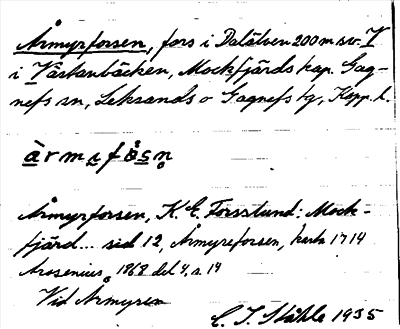 Årmyrforsen, fors i Dalälven 200 m sv. V
i Västanbäcken, Mockfjärds kap. Gag-
nefs sn, Leksands o Gagnefs tg, Kopp. l.
Årmyrforsen, K. E. Forsslund: Mock-
fjärd... sid 12, Åmyreforsen, karta 1714
Arosenius, 1868 del 4, s. 19
Vid Årmyren
C. I. Ståhle 1935